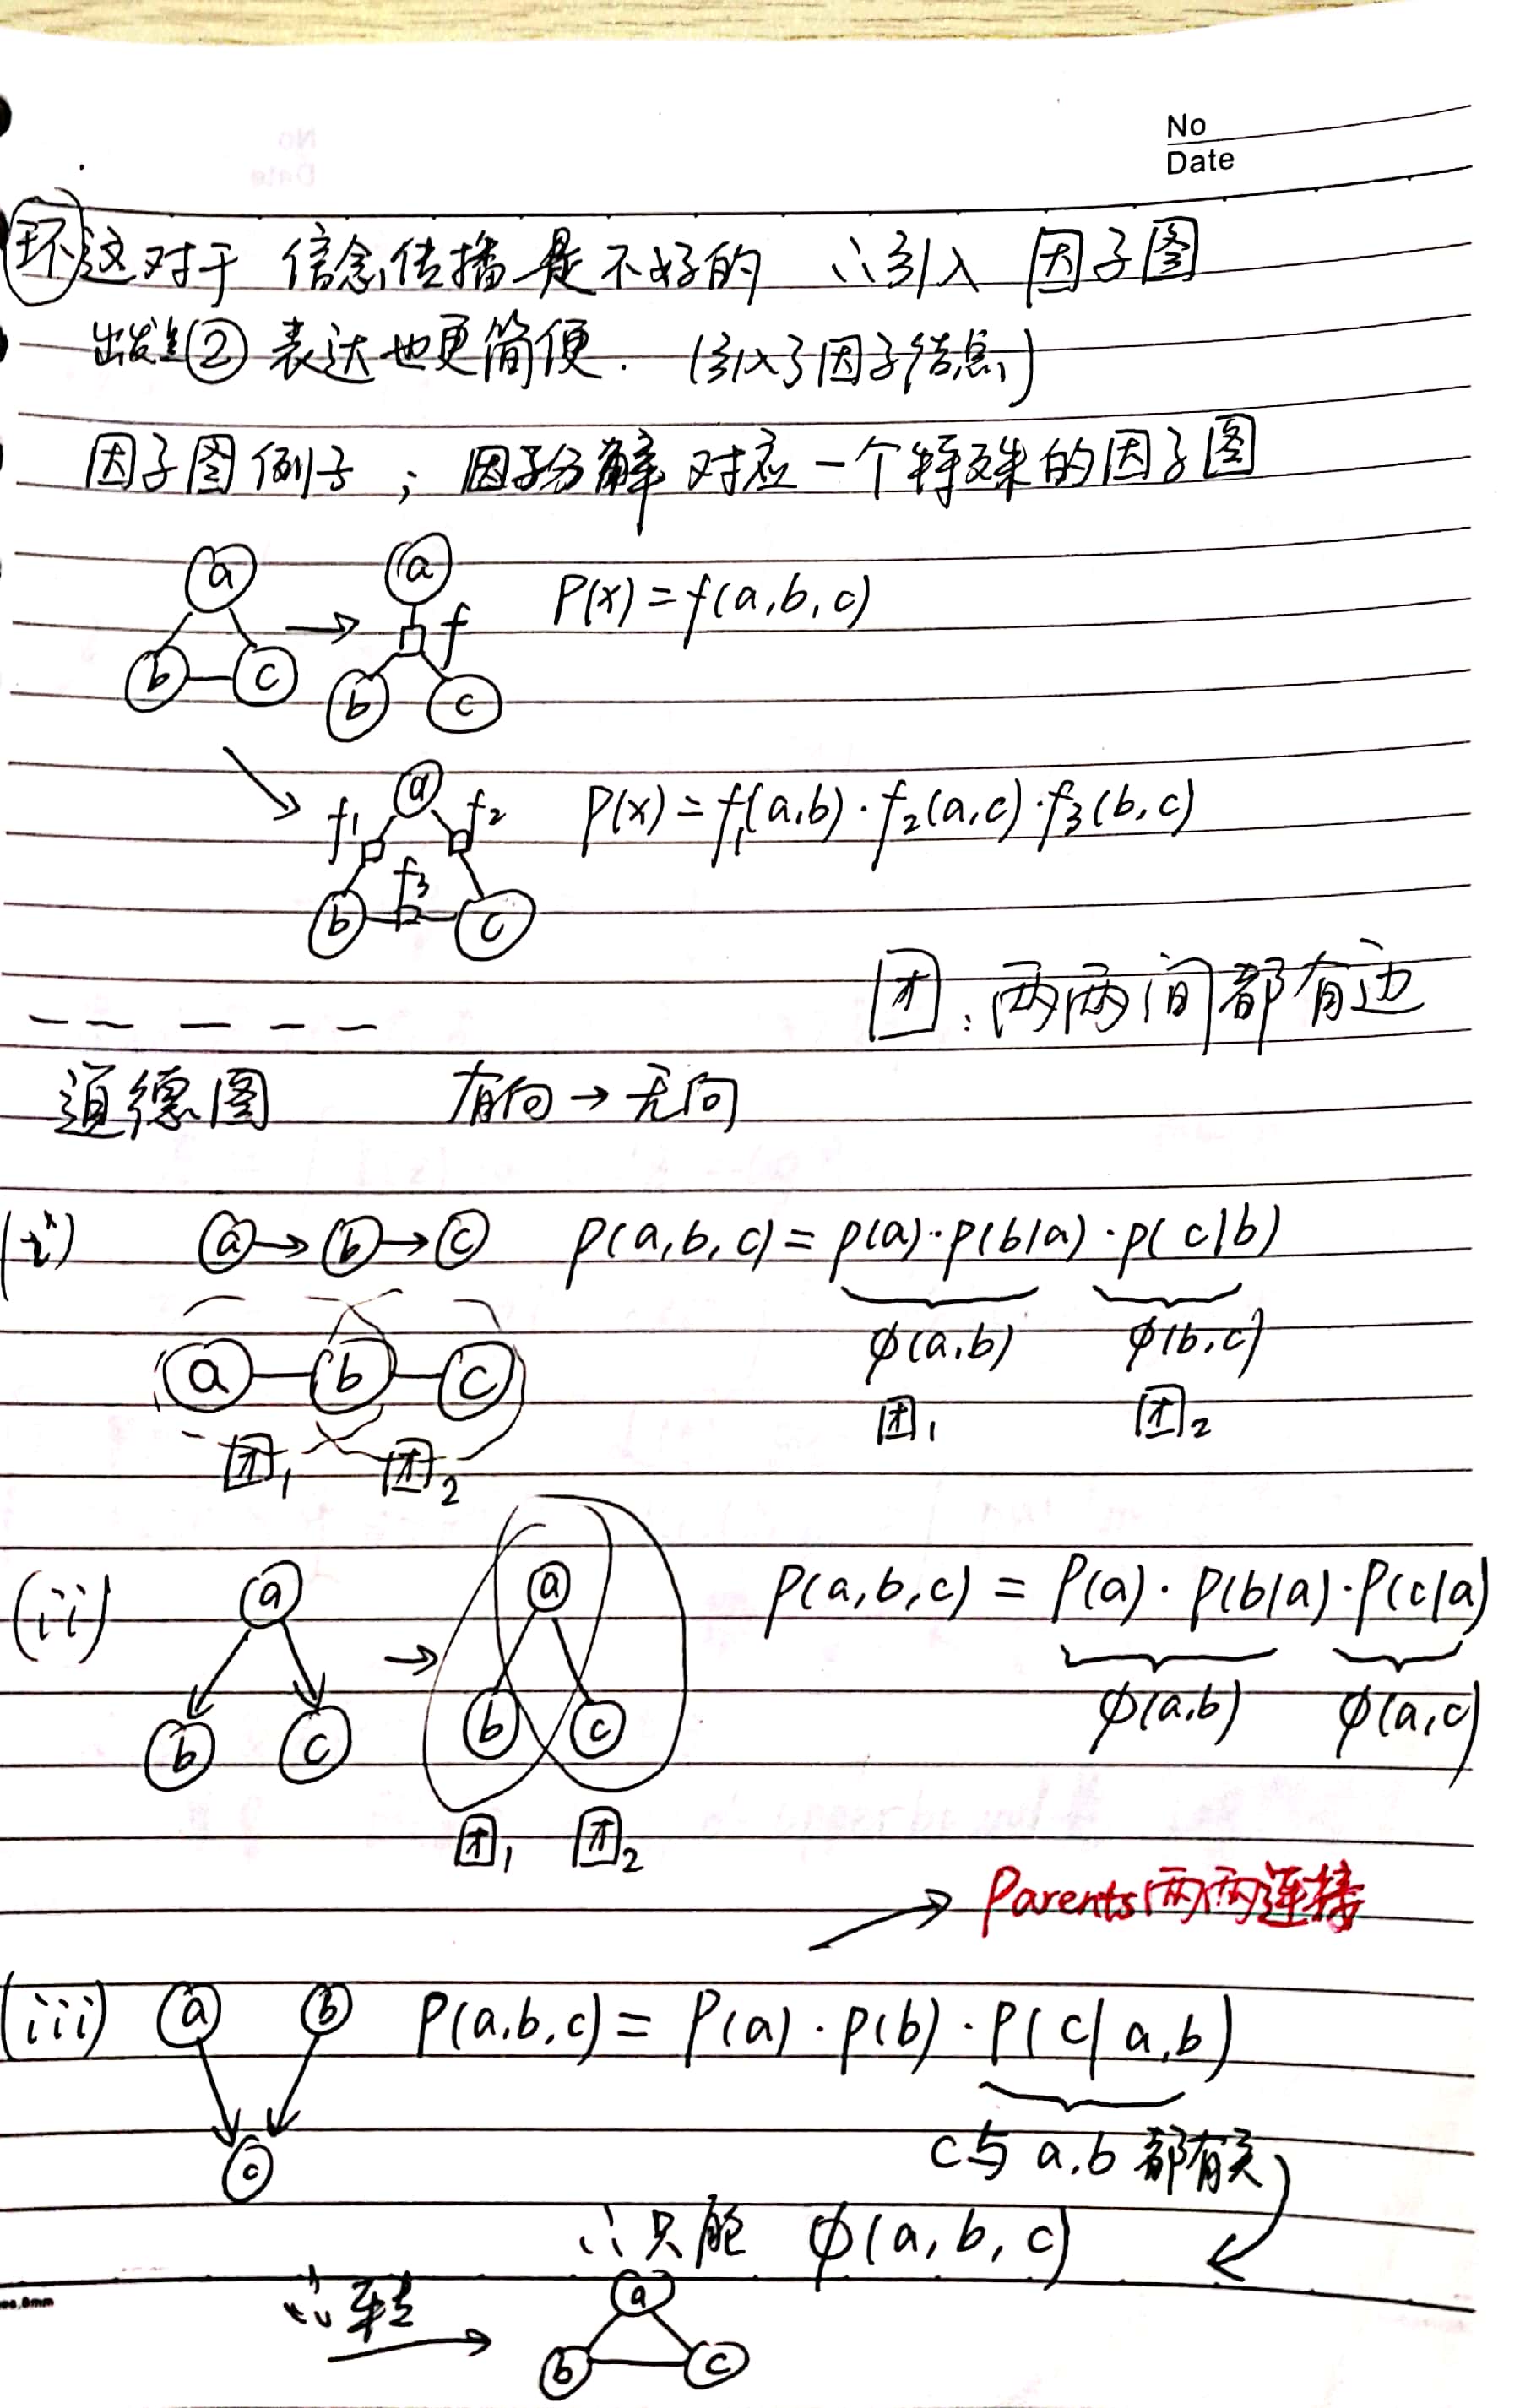 No
Date
环 这对于 信念传播是不好的 ∴引入 因子图
出发点② 表达也更简便. (引入了因子结点)
因子图例子 ; 因子分解 对应一个特殊的因子图
a b c → a f b c P(x) = f(a,b,c)
a f1 f2 b f3 c P(x) = f1(a,b)·f2(a,c)·f3(b,c)
团: 两两间都有边
道德图 有向→无向
(i) a→b→c p(a,b,c) = p(a)·p(b|a)·p(c|b)
a b c φ(a,b) φ(b,c)
团1 团2 团1 团2
(ii) a b c → a b c p(a,b,c) = P(a)·P(b|a)·P(c|a)
φ(a,b) φ(a,c)
团1 团2
→ Parents两两连接
(iii) a b c P(a,b,c) = P(a)·p(b)·P(c|a,b)
c与a,b都有关
∴只能 φ(a,b,c)
∴转→ a b c